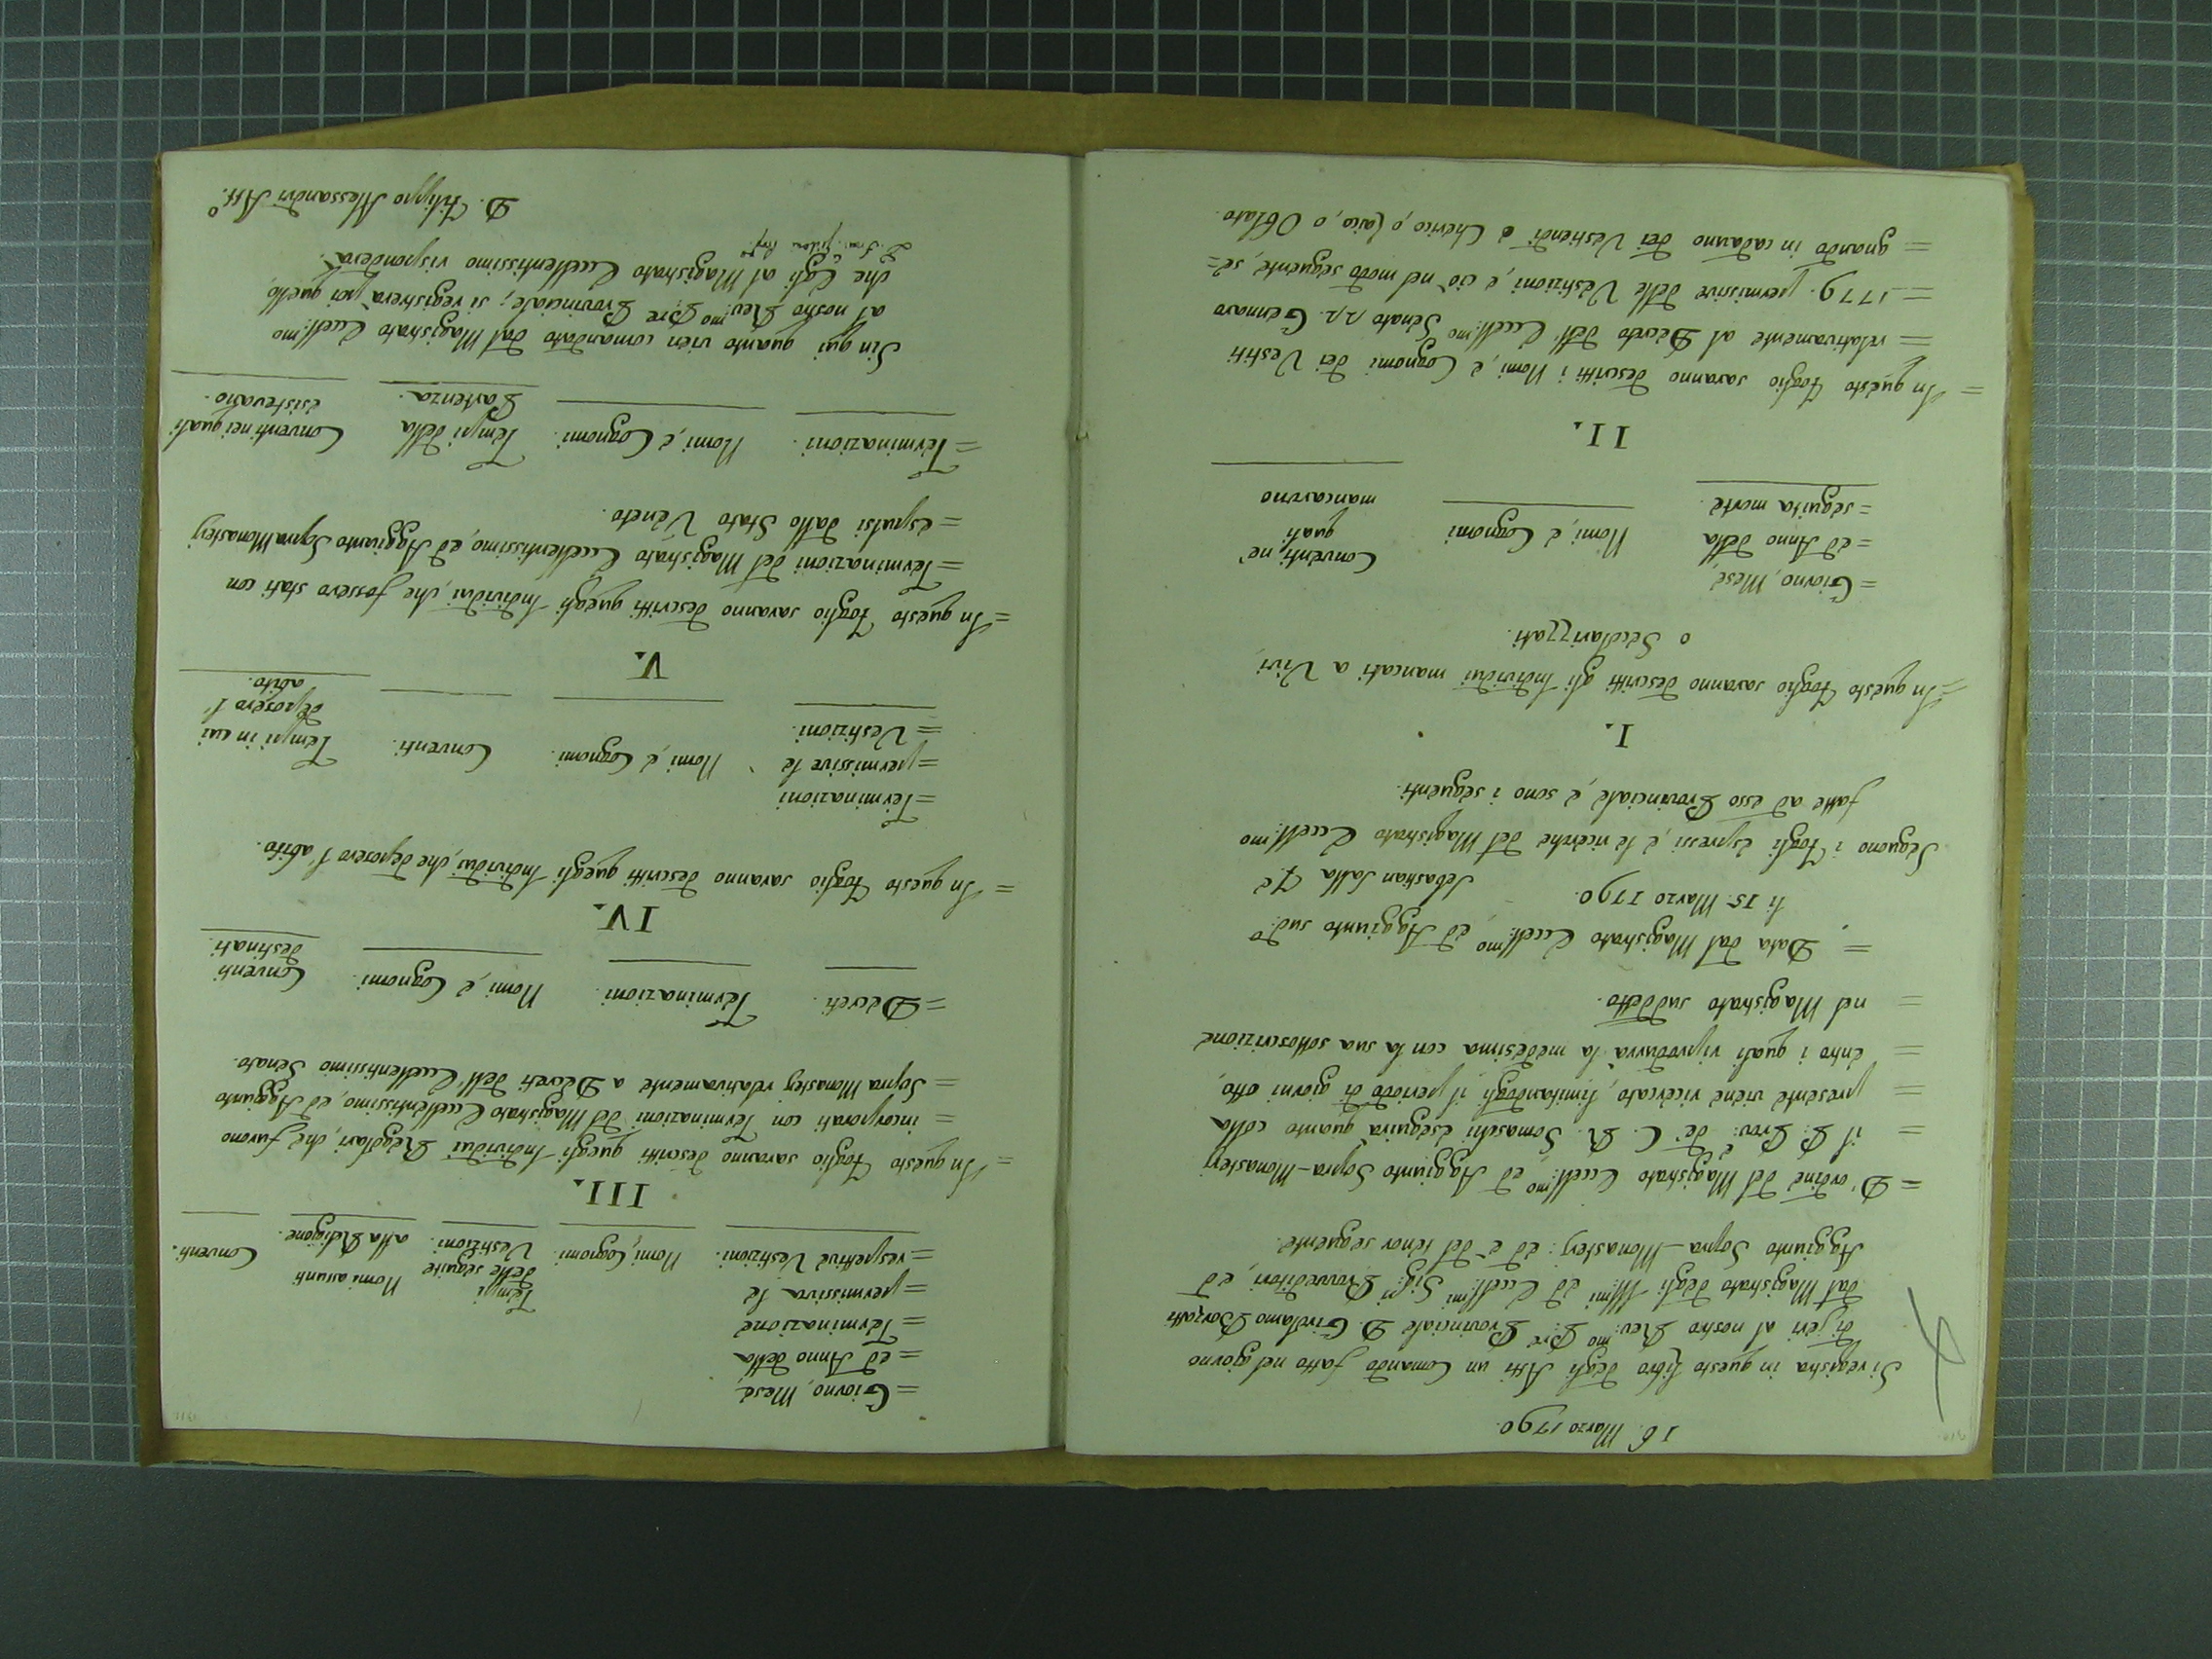 16. Marzo 1790.
Si registra in questo Libro degli Atti un Comando fatto nel giorno
di jeri al nostro Rev:mo Pre: Provinciale D. Girolamo Borzatti
dal Magistrato degli Ill:mi ed Eccell:mi Sig:ri Provveditori, ed
Aggiunto Sopra-Monasterj: ed è del tenor seguente.
= D'ordine del Magistrato Eccell:mo, ed Aggiunto Sopra-Monasterj
= il P: Prov:e de' C. R. Somaschi eseguirà quanto colla
= presente viene ricercato, limitandogli il periodo di giorni otto,
= entro i quali riprodurrà la medesima con la sua sottoscrizione
= nel Magistrato suddetto.
= Data dal Magistrato Eccell:mo, ed Aggiunto sud:o
li 15. Marzo 1790. Sebastian Salla
Seguono i fogli espressi, e le ricerche del Magistrato Eccell:mo
fatte ad esso Provinciale, e sono i seguenti.
I.
= In questo foglio saranno descritti gli Individui mancati a Vivi,
o Secolarizzati.
= Giorno, Mese,
= ed Anno della Nomi, e Cognomi Conventi ne' quali
= seguita morte. mancarono
II.
= In questo foglio saranno descritti i Nomi, e Cognomi dei Vestiti
= relativamente al Decreto dell' Eccell:mo Senato 22. Gennaro
= 1779. permissivo delle Vestizioni, e ciò nel modo seguente, se=
= gnando in cadauno dei Vestiendi è Chierico, o Laico, o Oblato.
= Giorno, Mese,
= ed Anno della
= Terminazione Tempi
= permissiva le delle seguite Nomi assunti
= respettive Vestizioni. Nomi, Cognomi. Vestizioni. alla Religione. Conventi.
III.
= In questo foglio saranno descritti quegli Individui Regolari, che furono
= incorporati con Terminazioni del Magistrato Eccellentissimo, ed Aggiunto
= Sopra Monasterj relativamente a Decreti dell' Eccellentissimo Senato.
= Decreti. Terminazioni. Nomi, e Cognomi. Conventi
destinati.
IV.
= In questo foglio saranno descritti quegli Individui, che deposero l'abito.
= Terminazioni
= permissive le Nomi, e Cognomi. Conventi. Tempi in cui
= Vestizioni. deposero l'
abito.
V.
= In questo foglio saranno descritti quegli Individui, che fossero stati con
= Terminazioni del Magistrato Eccellentissimo, ed Aggiunto Sopra Monasterj
= espulsi dallo Stato Veneto.
= Terminazioni. Nomi, e Cognomi. Tempi della Conventi nei quali
Partenza. esistevano.
Sin qui quanto vien comandato dal Magistrato Eccell:mo
al nostro Rev:mo Pre Provinciale; si registrerà poi quello,
che Egli al Magistrato Eccellentissimo risponderà.
D. Filippo Alessandri Att:o